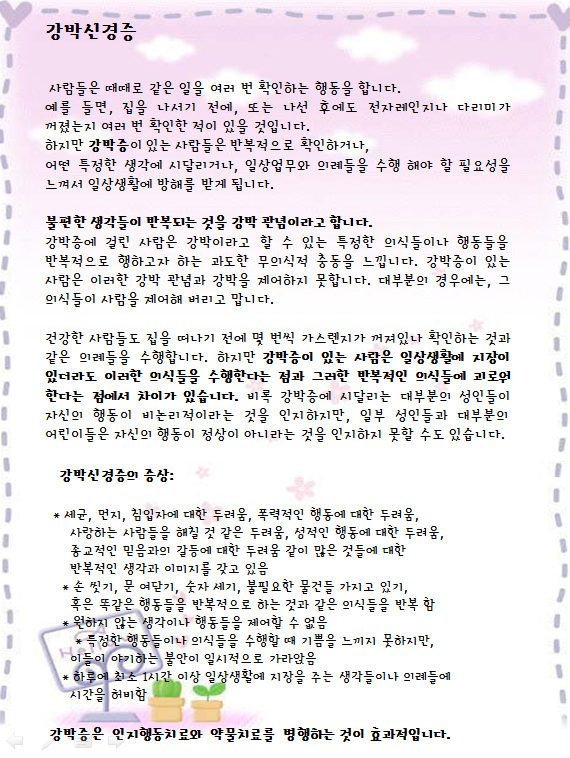 강박신경증
사람들은 때때로 같은 일을 여러 번 확인하는 행동을 합니다.
예를 들면, 집을 나서기 전에, 또는 나선 후에도 전자레인지나 다리미가
꺼졌는지 여러 번 확인한 적이 있을 것입니다.
하지만 강박증이 있는 사람들은 반복적으로 확인하거나,
어떤 특정한 생각에 시달리거나, 일상업무와 의례들을 수행 해야 할 필요성을
느껴서 일상생활에 방해를 받게 됩니다.
불편한 생각들이 반복되는 것을 강박 관념이라고 합니다.
강박증에 걸린 사람은 강박이라고 할 수 있는 특정한 의식들이나 행동들을
반복적으로 행하고자 하는 과도한 무의식적 충동을 느낍니다. 강박증이 있는
사람은 이러한 강박 관념과 강박을 제어하지 못합니다. 대부분의 경우에는, 그
의식들이 사람을 제어해 버리고 맙니다.
건강한 사람들도 집을 떠나기 전에 몇 번씩 가스렌지가 꺼져있나 확인하는 것과
같은 의례들을 수행합니다. 하지만 강박증이 있는 사람은 일상생활에 지장이
있더라도 이러한 의식들을 수행한다는 점과 그러한 반복적인 의식들에 괴로워
한다는 점에서 차이가 있습니다. 비록 강박증에 시달리는 대부분의 성인들이
자신의 행동이 비논리적이라는 것을 인지하지만, 일부 성인들과 대부분의
어린이들은 자신의 행동이 정상이 아니라는 것을 인지하지 못할 수도 있습니다.
강박신경증의 증상:
* 세균, 먼지, 침입자에 대한 두려움, 폭력적인 행동에 대한 두려움,
사랑하는 사람들을 해칠 것 같은 두려움, 성적인 행동에 대한 두려움,
종교적인 믿음과의 갈등에 대한 두려움 같이 많은 것들에 대한
반복적인 생각과 이미지를 갖고 있음
* 손 씻기, 문 여닫기, 숫자 세기, 불필요한 물건들 가지고 있기,
혹은 똑같은 행동들을 반복적으로 하는 것과 같은 의식들을 반복 함
* 원하지 않는 생각이나 행동들을 제어할 수 없음
* 특정한 행동들이나 의식들을 수행할 때 기쁨을 느끼지 못하지만,
이들이 야기하는 불안이 일시적으로 가라앉음
* 하루에 최소 1시간 이상 일상생활에 지장을 주는 생각들이나 의례들에
시간을 허비함
강박증은 인지행동치료와 약물치료를 병행하는 것이 효과적입니다.